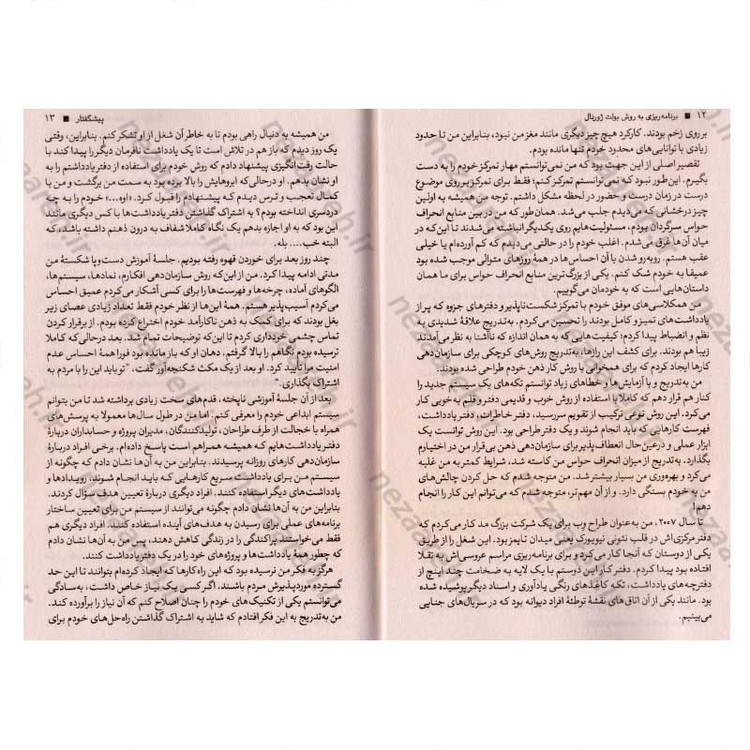 ۱۲ ■ برنامه‌ریزی به روش بولت ژورنال
بر روی زخم بودند. کارکرد هیچ چیز دیگری مانند مغز من نبود، بنابراین من تا حدود
زیادی با توانایی‌های محدود خودم تنها مانده بودم.
تقصیر اصلی از این جهت بود که من نمی‌توانستم مهار تمرکز خودم را به دست
بگیرم. این‌طور نبود که نمی‌توانستم تمرکز کنم؛ فقط برای تمرکز بر روی موضوع
درست در زمان درست و حضور در لحظه مشکل داشتم. توجه من همیشه به اولین
چیز درخشانی که می‌دیدم جلب می‌شد. همان‌طور که من در بین منابع انحراف
حواس سرگردان بودم، مسئولیت‌هایم روی یکدیگر انباشته می‌شدند تا این‌که در
میان آن‌ها غرق می‌شدم. اغلب خودم را در حالتی می‌دیدم که کم آورده‌ام یا خیلی
عقب هستم. روبه‌رو شدن با آن احساس‌ها در همۀ روزهای متوالی موجب شده بود
عمیقا به خودم شک کنم. یکی از بزرگ‌ترین منابع انحراف حواس برای ما همان
داستان‌هایی است که به خودمان می‌گوییم.
من همکلاسی‌های موفق خودم با تمرکز شکست‌ناپذیر و دفترهای جزوه که پر از
یادداشت‌های تمیز و کامل بودند را تحسین می‌کردم. به‌تدریج علاقۀ شدیدی به
نظم و انضباط پیدا کردم؛ کیفیت‌هایی که به همان اندازه که ناآشنا به نظر می‌آمدند
زیبا هم بودند. برای کشف این رازها، به‌تدریج روش‌های کوچکی برای سازمان‌دهی
کارها ایجاد کردم که برای همخوانی با روش کار ذهن خودم طراحی شده بودند.
من به‌تدریج و با آزمایش‌ها و خطاهای زیاد توانستم تکه‌های یک سیستم جدید را
کنار هم قرار دهم که کاملا با استفاده از روش خوب و قدیمی دفتر و قلم به‌خوبی کار
می‌کرد. این روش نوعی ترکیب از تقویم سررسید، دفتر خاطرات، دفتر یادداشت،
فهرست کارهایی که باید انجام شوند و یک دفتر طراحی بود. این روش توانست یک
ابزار عملی و در عین حال انعطاف‌پذیر برای سازمان‌دهی ذهن بی‌قرار من در اختیارم
بگذارد. به‌تدریج از میزان انحراف حواس من کاسته شد، شرایط کمتر به من غلبه
می‌کرد و بهره‌وری من بسیار بیشتر شد. من متوجه شدم که حل کردن چالش‌های
من به خودم بستگی دارد. و از آن مهم‌تر، متوجه شدم که می‌توانم این کار را انجام
دهم!
تا سال ۲۰۰۷، من به‌عنوان طراح وب برای یک شرکت بزرگ مد کار می‌کردم که
دفتر مرکزی‌اش در قلب نئونی نیویورک یعنی میدان تایمز بود. این شغل را از طریق
یکی از دوستان که آنجا کار می‌کرد و برای برنامه‌ریزی مراسم عروسی‌اش به تقلا
افتاده بود پیدا کردم. دفتر کار این دوستم با یک لایه به ضخامت چند اینچ از
دفترچه‌های یادداشت، تکه کاغذهای رنگی یادآوری و اسناد دیگر پوشیده شده
بود. مانند یکی از آن اتاق‌های نقشۀ توطئۀ افراد دیوانه بود که در سریال‌های جنایی
می‌بینیم.
پیشگفتار ■ ۱۳
من همیشه به دنبال راهی بودم تا به خاطر آن شغل از او تشکر کنم. بنابراین، وقتی
یک روز دیدم که باز هم در تلاش است تا یک یادداشت نافرمان دیگر را پیدا کند با
حالت رقت‌انگیزی پیشنهاد دادم که روش خودم برای استفاده از دفتر یادداشتم را به
او نشان بدهم. او درحالی‌که ابروهایش را بالا برده بود به سمت من برگشت و من با
کمال تعجب و ترس دیدم که پیشنهادم را قبول کرد. «اوه...» خودم را به چه
دردسری انداخته بودم؟ به اشتراک گذاشتن دفتر یادداشت‌ها با کس دیگری مانند
این بود که به او اجازه بدهم یک نگاه کاملا شفاف به درون ذهنم داشته باشد، که
البته خب..... بله.
چند روز بعد برای خوردن قهوه رفته بودیم. جلسۀ آموزش دست‌وپا شکستۀ من
مدتی ادامه پیدا کرد. من از این‌که روش سازمان‌دهی افکارم، نمادها، سیستم‌ها،
الگوهای آماده، چرخه‌ها و فهرست‌ها را برای کسی آشکار می‌کردم عمیق احساس
می‌کردم آسیب‌پذیر هستم. همۀ این‌ها از نظر خودم فقط تعداد زیادی عصای زیر
بغل بودند که برای کمک به ذهن ناکارآمد خودم اختراع کرده بودم. از برقرار کردن
تماس چشمی خودداری کردم تا این‌که توضیحات تمام شد. بعد درحالی‌که کاملا
ترسیده بودم نگاهم را بالا گرفتم. دهان او که باز مانده بود فورا همۀ احساس عدم
امنیت مرا تأیید کرد. او بعد از یک مکث شکنجه‌آور گفت، «تو باید این را با مردم به
اشتراک بگذاری.»
بعد از آن جلسۀ آموزشی ناپخته، قدم‌های سخت زیادی برداشته شد تا من بتوانم
سیستم ابداعی خودم را معرفی کنم. اما من در طول سال‌ها معمولا به پرسش‌های
همراه با خجالت از طرف طراحان، تولیدکنندگان، مدیران پروژه و حسابداران دربارۀ
دفتر یادداشت‌هایم که همیشه همراهم است پاسخ داده‌ام. برخی افراد دربارۀ
سازمان‌دهی کارهای روزانه پرسیدند. بنابراین من به آن‌ها نشان دادم که چگونه از
سیستم من برای یادداشت سریع کارهایی که باید انجام شوند، رویدادها و
یادداشت‌های دیگر استفاده کنند. افراد دیگری دربارۀ تعیین هدف سؤال کردند.
بنابراین من به آن‌ها نشان دادم چگونه می‌توانند از سیستم من برای تعیین ساختار
برنامه‌های عملی برای رسیدن به هدف‌های آینده استفاده کنند. افراد دیگری هم
فقط می‌خواستند پراکندگی را در زندگی کاهش دهند، پس من به آن‌ها نشان دادم
که چطور همۀ یادداشت‌ها و پروژه‌های خود را در یک دفتر یادداشت کنند.
هرگز به فکر من نرسیده بود که این راه‌کارها که ایجاد کرده‌ام بتوانند تا این حد
گسترده مورد پذیرش مردم باشند. اگر کسی یک نیاز خاص داشت، به‌سادگی
می‌توانستم یکی از تکنیک‌های خودم را چنان اصلاح کنم که آن نیاز را برآورده کند.
من به‌تدریج به این فکر افتادم که شاید به اشتراک گذاشتن راه‌حل‌های خودم برای
nezaareh.ir